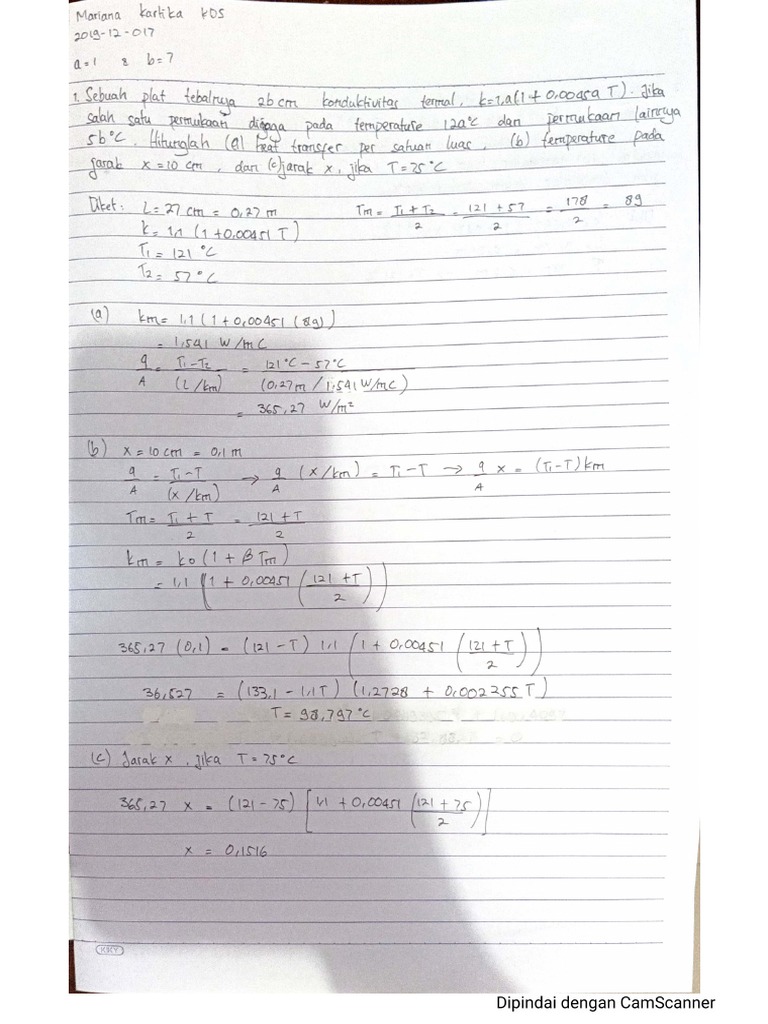 Mariana Kartika KDS
2019-12-017
a=1 & b=7
1. Sebuah plat tebalnya 2b cm konduktivitas termal, k=1,a(1+0,0045a T). Jika
salah satu permukaan dijaga pada temperature 12a°C dan permukaan lainnya
5b°C. Hitunglah (a) heat transfer per satuan luas, (b) temperature pada
jarak x=10 cm, dan (c) jarak x, jika T=75°C
Diket: L=27 cm = 0,27 m Tm = T1+T2/2 = 121+57/2 = 178/2 = 89
k=1,1 (1+0,00451 T)
T1 = 121 °C
T2 = 57 °C
(a) km = 1,1 (1+0,00451 (89))
= 1,541 W/mC
q/A = T1-T2/(L/km) = 121°C - 57°C/(0,27m / 1,541 W/mC)
= 365,27 W/m²
(b) x=10 cm = 0,1 m
q/A = T1-T/(x/km) → q/A (x/km) = T1-T → q/A x = (T1-T) km
Tm = T1+T/2 = 121+T/2
km = ko (1+β Tm)
= 1,1 (1+0,00451 (121+T/2))
365,27 (0,1) = (121-T) 1,1 (1+0,00451 (121+T/2))
36,527 = (133,1 - 1,1T) (1,2728 + 0,002255 T)
T = 98,797°C
(c) Jarak x, jika T=75°C
365,27 x = (121-75) [1,1 + 0,00451 (121+75/2)]
x = 0,1516
KIKY
Dipindai dengan CamScanner